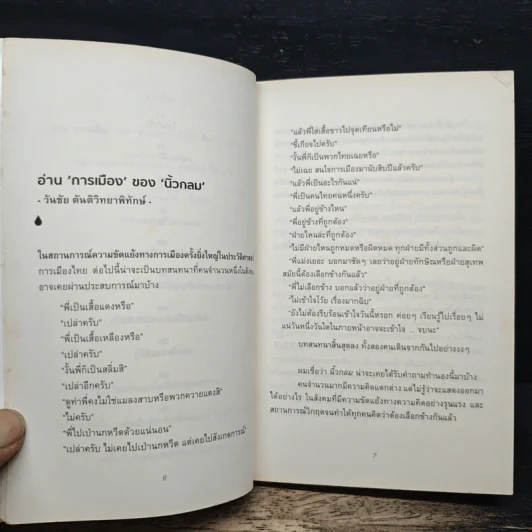 อ่าน ‘การเมือง’ ของ ‘นิ้วกลม’
- วันชัย ตันติวิทยาพิทักษ์ -
ในสถานการณ์ความขัดแย้งทางการเมืองครั้งยิ่งใหญ่ในประวัติศาสตร์
การเมืองไทย ต่อไปนี้น่าจะเป็นบทสนทนาที่คนจำนวนหนึ่งในสังคม
อาจเคยผ่านประสบการณ์มาบ้าง
“พี่เป็นเสื้อแดงหรือ”
“เปล่าครับ”
“พี่เป็นเสื้อเหลืองหรือ”
“เปล่าครับ”
“งั้นพี่ก็เป็นสลิ่มสิ”
“เปล่าอีกครับ”
“ดูท่าพี่คงไม่ใช่แมลงสาบหรือพวกควายแดงสิ”
“ไม่ครับ”
“พี่ไปเป่านกหวีดด้วยแน่นอน”
“เปล่าครับ ไม่เคยไปเป่านกหวีด แต่เคยไปสังเกตการณ์”
6
“แล้วพี่ใส่เสื้อขาวไปจุดเทียนหรือไม่”
“ขี้เกียจไปครับ”
“งั้นพี่ก็เป็นพวกไทยเฉยหรือ”
“ไม่เฉย สนใจการเมืองมานับสิบปีแล้วครับ”
“แล้วพี่เป็นอะไรกันแน่”
“พี่เป็นคนไทยคนหนึ่งครับ”
“แล้วพี่อยู่ข้างไหน”
“พี่อยู่ข้างที่ถูกต้อง”
“ฝ่ายไหนล่ะที่ถูกต้อง”
“ไม่มีฝ่ายไหนถูกหมดหรือผิดหมด ทุกฝ่ายมีทั้งส่วนถูกและผิด”
“พี่แม่งเยอะ บอกมาชัดๆ เลยว่าอยู่ฝ่ายทักษิณหรือฝ่ายสุเทพ
สมัยนี้ต้องเลือกข้างกันแล้ว”
“พี่ไม่เลือกข้าง บอกแล้วว่าอยู่ฝ่ายที่ถูกต้อง”
“ไม่เข้าใจโว้ย เรื่องมากฉิบ”
“ยังไม่ต้องรีบร้อนเข้าใจวันนี้หรอก ค่อยๆ เรียนรู้ไปเรื่อยๆ ไม่
แน่วันหนึ่งวันใดในภายหน้าอาจจะเข้าใจ ... จบนะ”
บทสนทนาสิ้นสุดลง ทั้งสองคนเดินจากกันไปอย่างงงๆ
ผมเชื่อว่า นิ้วกลม น่าจะเคยได้รับคำถามทำนองนี้มาบ้าง
คนจำนวนมากมีความคิดแตกต่าง แต่ไม่รู้ว่าจะแสดงออกมา
ได้อย่างไร ในสังคมที่มีความขัดแย้งทางความคิดอย่างรุนแรง และ
สถานการณ์วิกฤตจนทำให้ทุกคนคิดว่าต้องเลือกข้างกันแล้ว
7